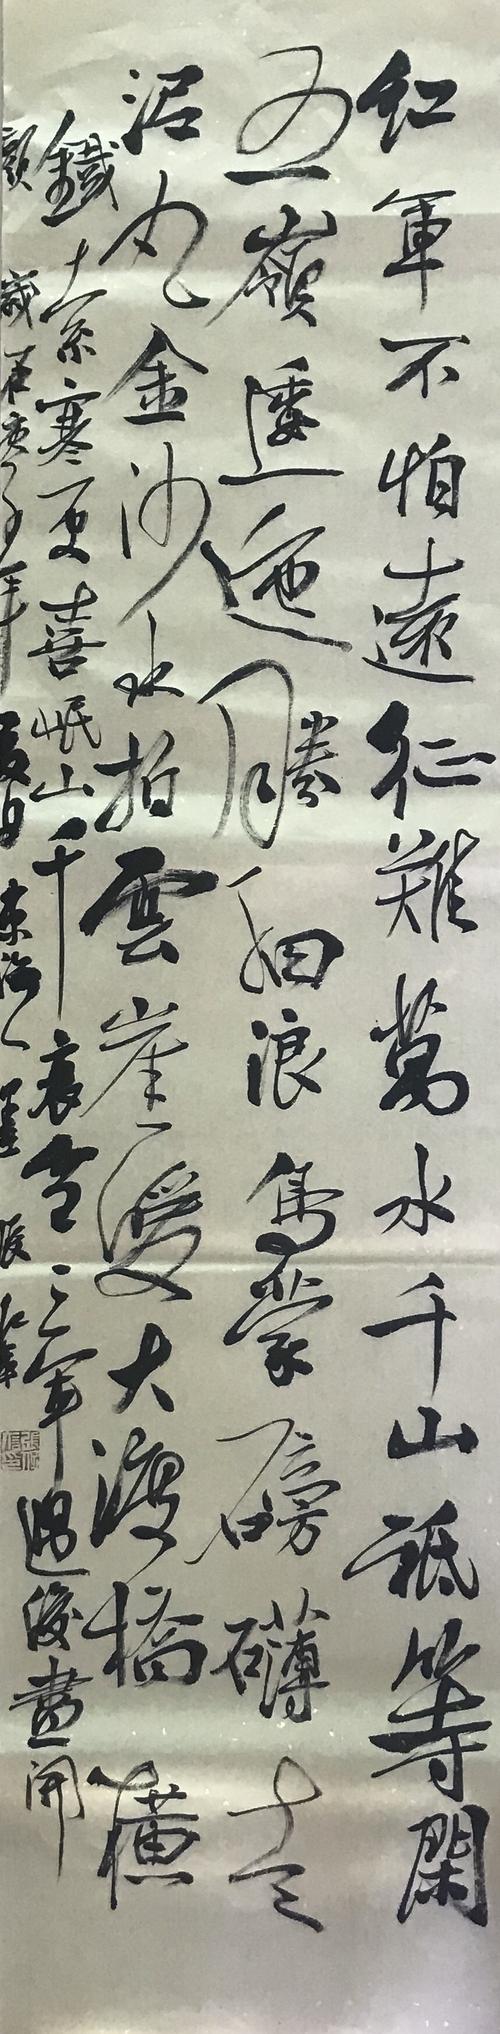 紅軍不怕遠征難萬水千山祗等閑
五嶺逶迤騰細浪烏蒙磅礴走
泥丸金沙水拍雲崖暖大渡橋橫
鐵索寒更喜岷山千裏雪三軍過後盡開
顏 歲在庚子年夏日東海一墨